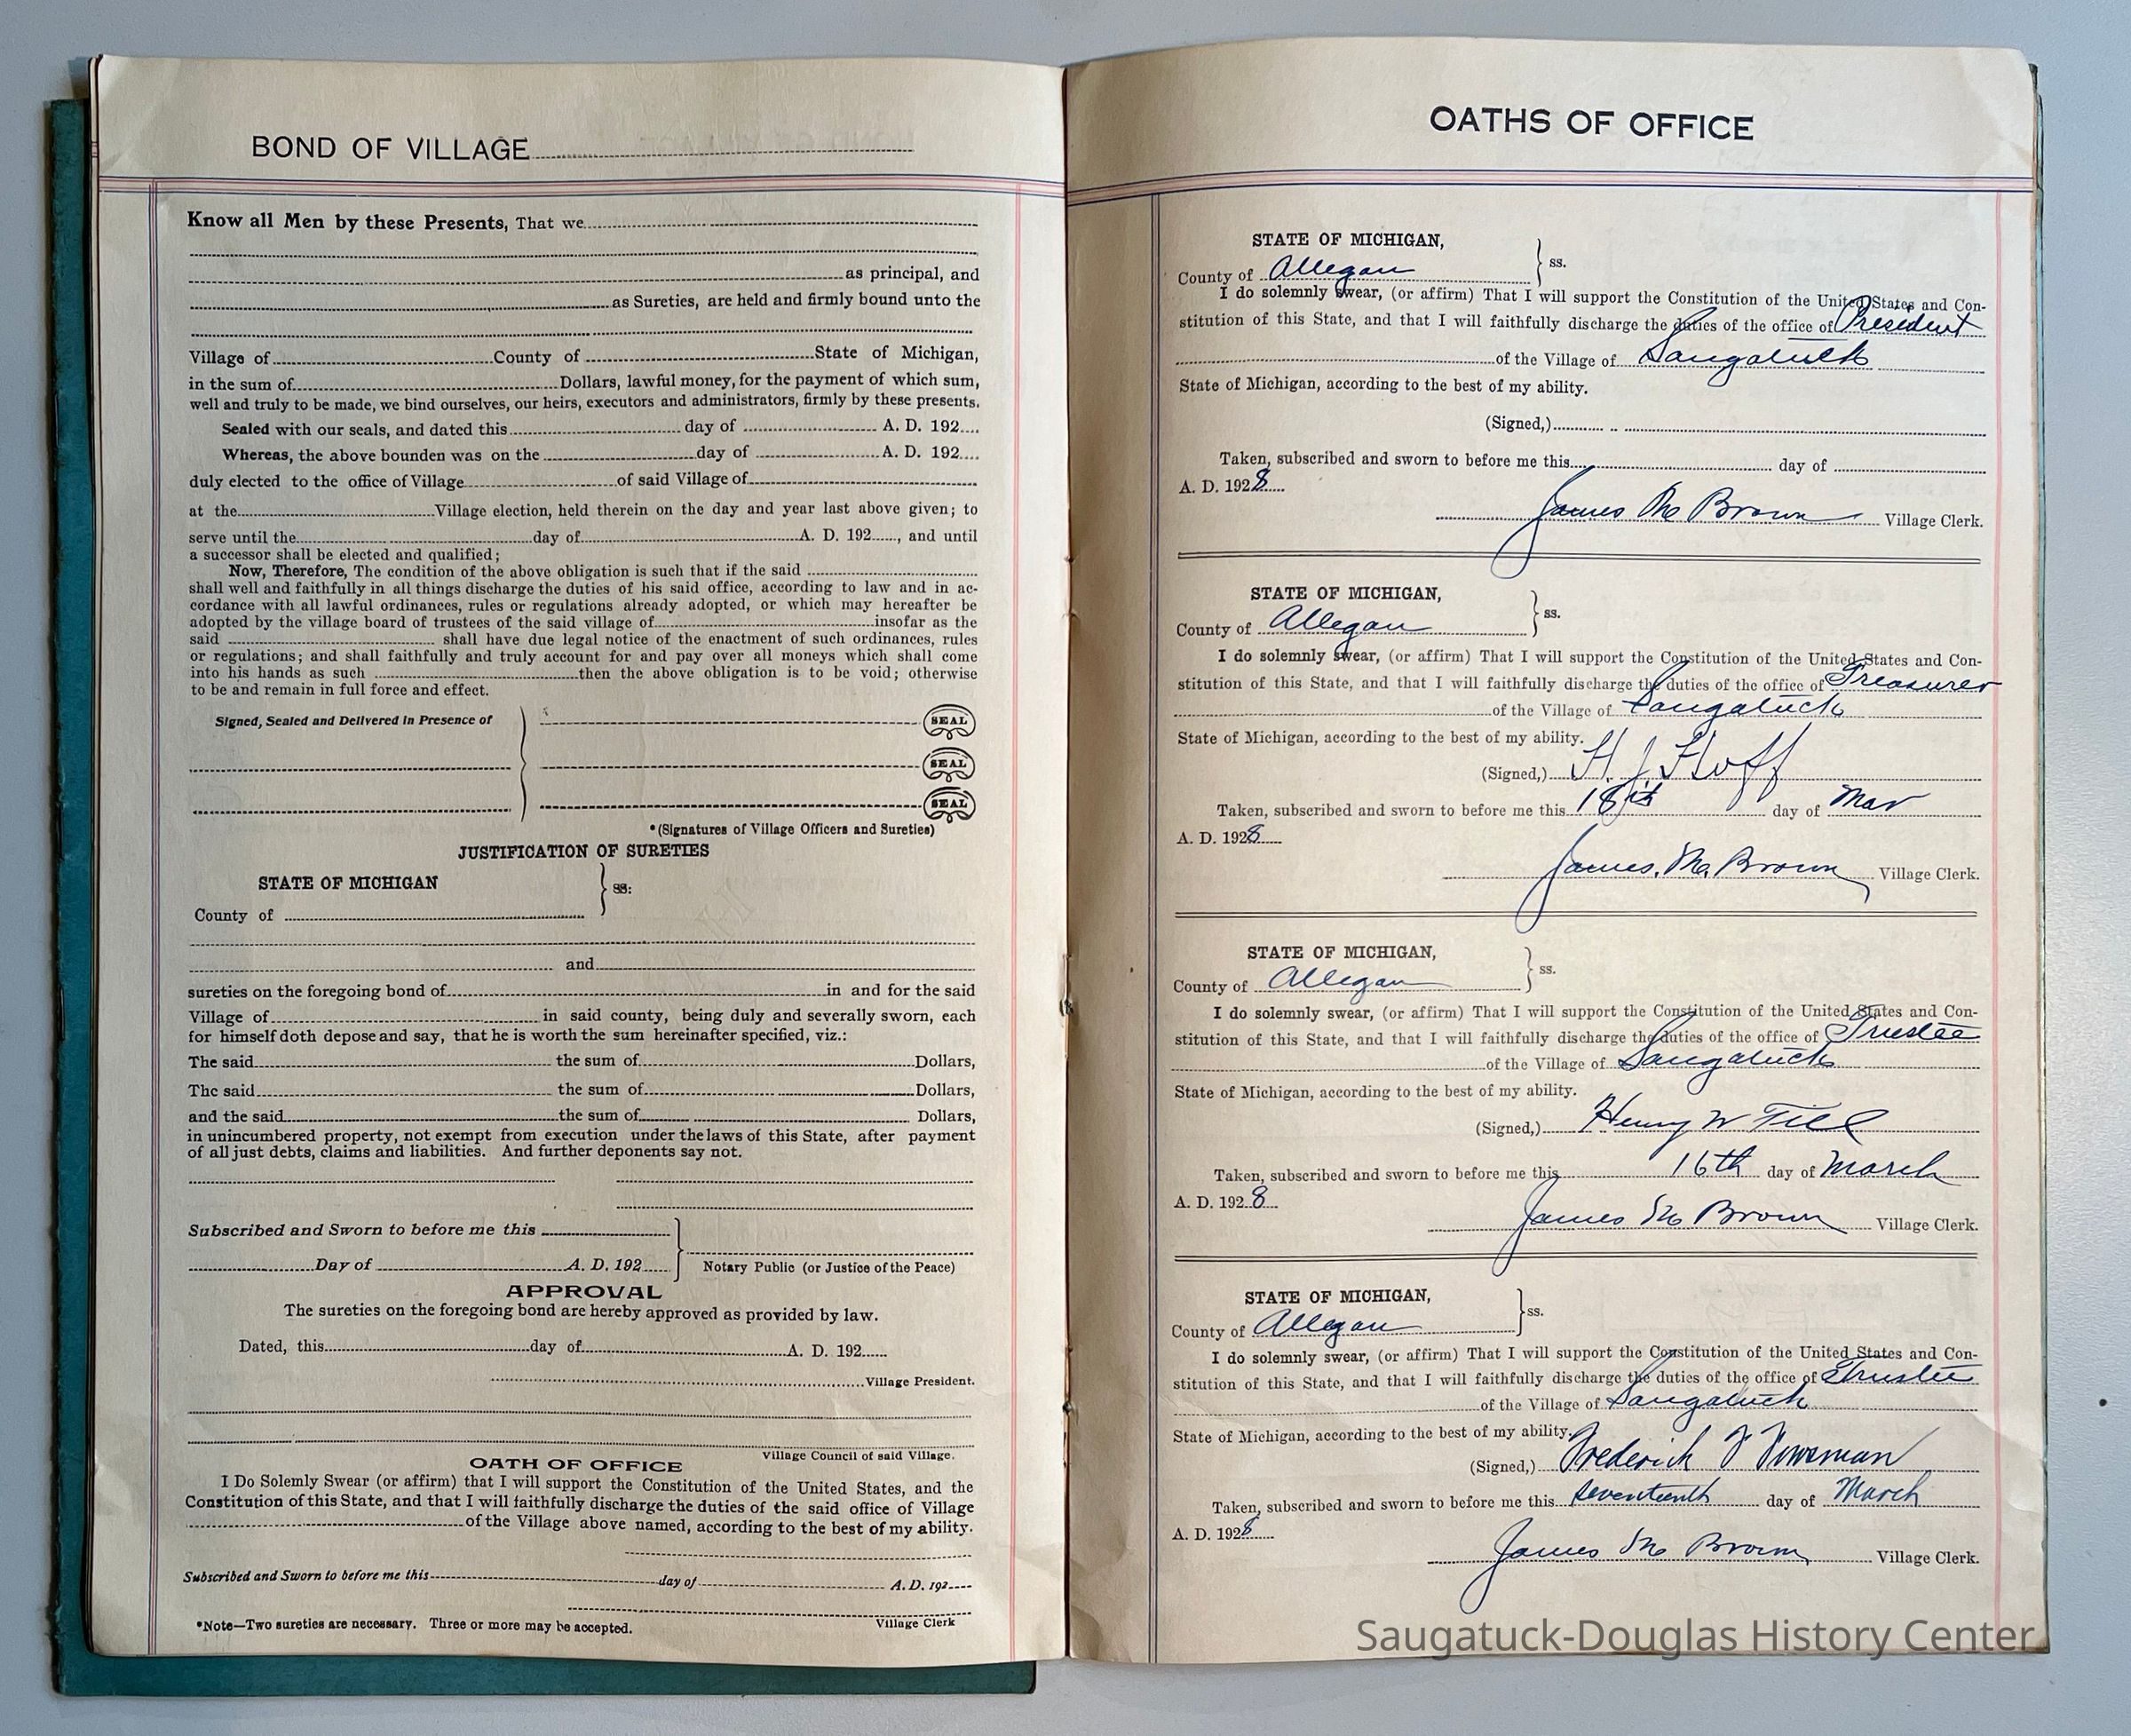 BOND OF VILLAGE
Know all Men by these Presents, That we
as principal, and
as Sureties, are held and firmly bound unto the
Village of County of State of Michigan,
in the sum of Dollars, lawful money, for the payment of which sum,
well and truly to be made, we bind ourselves, our heirs, executors and administrators, firmly by these presents.
Sealed with our seals, and dated this day of A. D. 192
Whereas, the above bounden was on the day of A. D. 192
duly elected to the office of Village of said Village of
at the Village election, held therein on the day and year last above given; to
serve until the day of A. D. 192 , and until
a successor shall be elected and qualified;
Now, Therefore, The condition of the above obligation is such that if the said
shall well and faithfully in all things discharge the duties of his said office, according to law and in ac-
cordance with all lawful ordinances, rules or regulations already adopted, or which may hereafter be
adopted by the village board of trustees of the said village of insofar as the
said shall have due legal notice of the enactment of such ordinances, rules
or regulations; and shall faithfully and truly account for and pay over all moneys which shall come
into his hands as such then the above obligation is to be void; otherwise
to be and remain in full force and effect.
Signed, Sealed and Delivered in Presence of
SEAL
SEAL
SEAL
*(Signatures of Village Officers and Sureties)
JUSTIFICATION OF SURETIES
STATE OF MICHIGAN
ss:
County of
and
sureties on the foregoing bond of in and for the said
Village of in said county, being duly and severally sworn, each
for himself doth depose and say, that he is worth the sum hereinafter specified, viz.:
The said the sum of Dollars,
The said the sum of Dollars,
and the said the sum of Dollars,
in unincumbered property, not exempt from execution under the laws of this State, after payment
of all just debts, claims and liabilities. And further deponents say not.
Subscribed and Sworn to before me this
Day of A. D. 192
Notary Public (or Justice of the Peace)
APPROVAL
The sureties on the foregoing bond are hereby approved as provided by law.
Dated, this day of A. D. 192
Village President.
Village Council of said Village.
OATH OF OFFICE
I Do Solemnly Swear (or affirm) that I will support the Constitution of the United States, and the
Constitution of this State, and that I will faithfully discharge the duties of the said office of Village
of the Village above named, according to the best of my ability.
Subscribed and Sworn to before me this day of A. D. 192
Village Clerk
*Note—Two sureties are necessary. Three or more may be accepted.
OATHS OF OFFICE
STATE OF MICHIGAN,
ss.
County of Allegan
I do solemnly swear, (or affirm) That I will support the Constitution of the United States and Con-
stitution of this State, and that I will faithfully discharge the duties of the office of President
of the Village of Saugatuck
State of Michigan, according to the best of my ability.
(Signed,)
Taken, subscribed and sworn to before me this day of
A. D. 1928
James Mc Brown Village Clerk.
STATE OF MICHIGAN,
ss.
County of Allegan
I do solemnly swear, (or affirm) That I will support the Constitution of the United States and Con-
stitution of this State, and that I will faithfully discharge the duties of the office of Treasurer
of the Village of Saugatuck
State of Michigan, according to the best of my ability.
(Signed,) H. J. Hoff
Taken, subscribed and sworn to before me this day of Mar
A. D. 1928
James Mc Brown Village Clerk.
STATE OF MICHIGAN,
ss.
County of Allegan
I do solemnly swear, (or affirm) That I will support the Constitution of the United States and Con-
stitution of this State, and that I will faithfully discharge the duties of the office of Trustee
of the Village of Saugatuck
State of Michigan, according to the best of my ability.
(Signed,) Henry W Till
Taken, subscribed and sworn to before me this 16th day of March
A. D. 1928
James Mc Brown Village Clerk.
STATE OF MICHIGAN,
ss.
County of Allegan
I do solemnly swear, (or affirm) That I will support the Constitution of the United States and Con-
stitution of this State, and that I will faithfully discharge the duties of the office of Trustee
of the Village of Saugatuck
State of Michigan, according to the best of my ability.
(Signed,) Frederick
Taken, subscribed and sworn to before me this seventeenth day of March
A. D. 1928
James Mc Brown Village Clerk.
Saugatuck-Douglas History Center